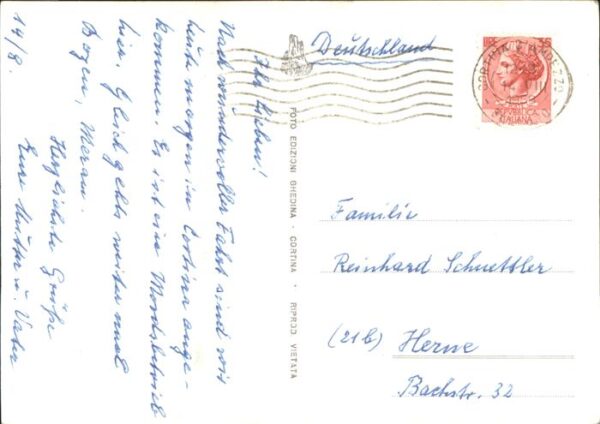 14/8.
Ihr Lieben!
Nach wundervoller Fahrt sind wir
heute morgen in Cortina ange-
kommen. Es ist ein Mordsbetrieb
hier. Gleich gehts weiter nach
Bozen, Meran.
Herzlichste Grüße
Eure Mutter u. Vater
FOTO EDIZIONI GHEDINA - CORTINA - RIPROD VIETATA
Deutschland
CORTINA D'AMPEZZO
ITALIANA
Familie
Reinhard Schnettler
(21b) Herne
Bachstr. 32